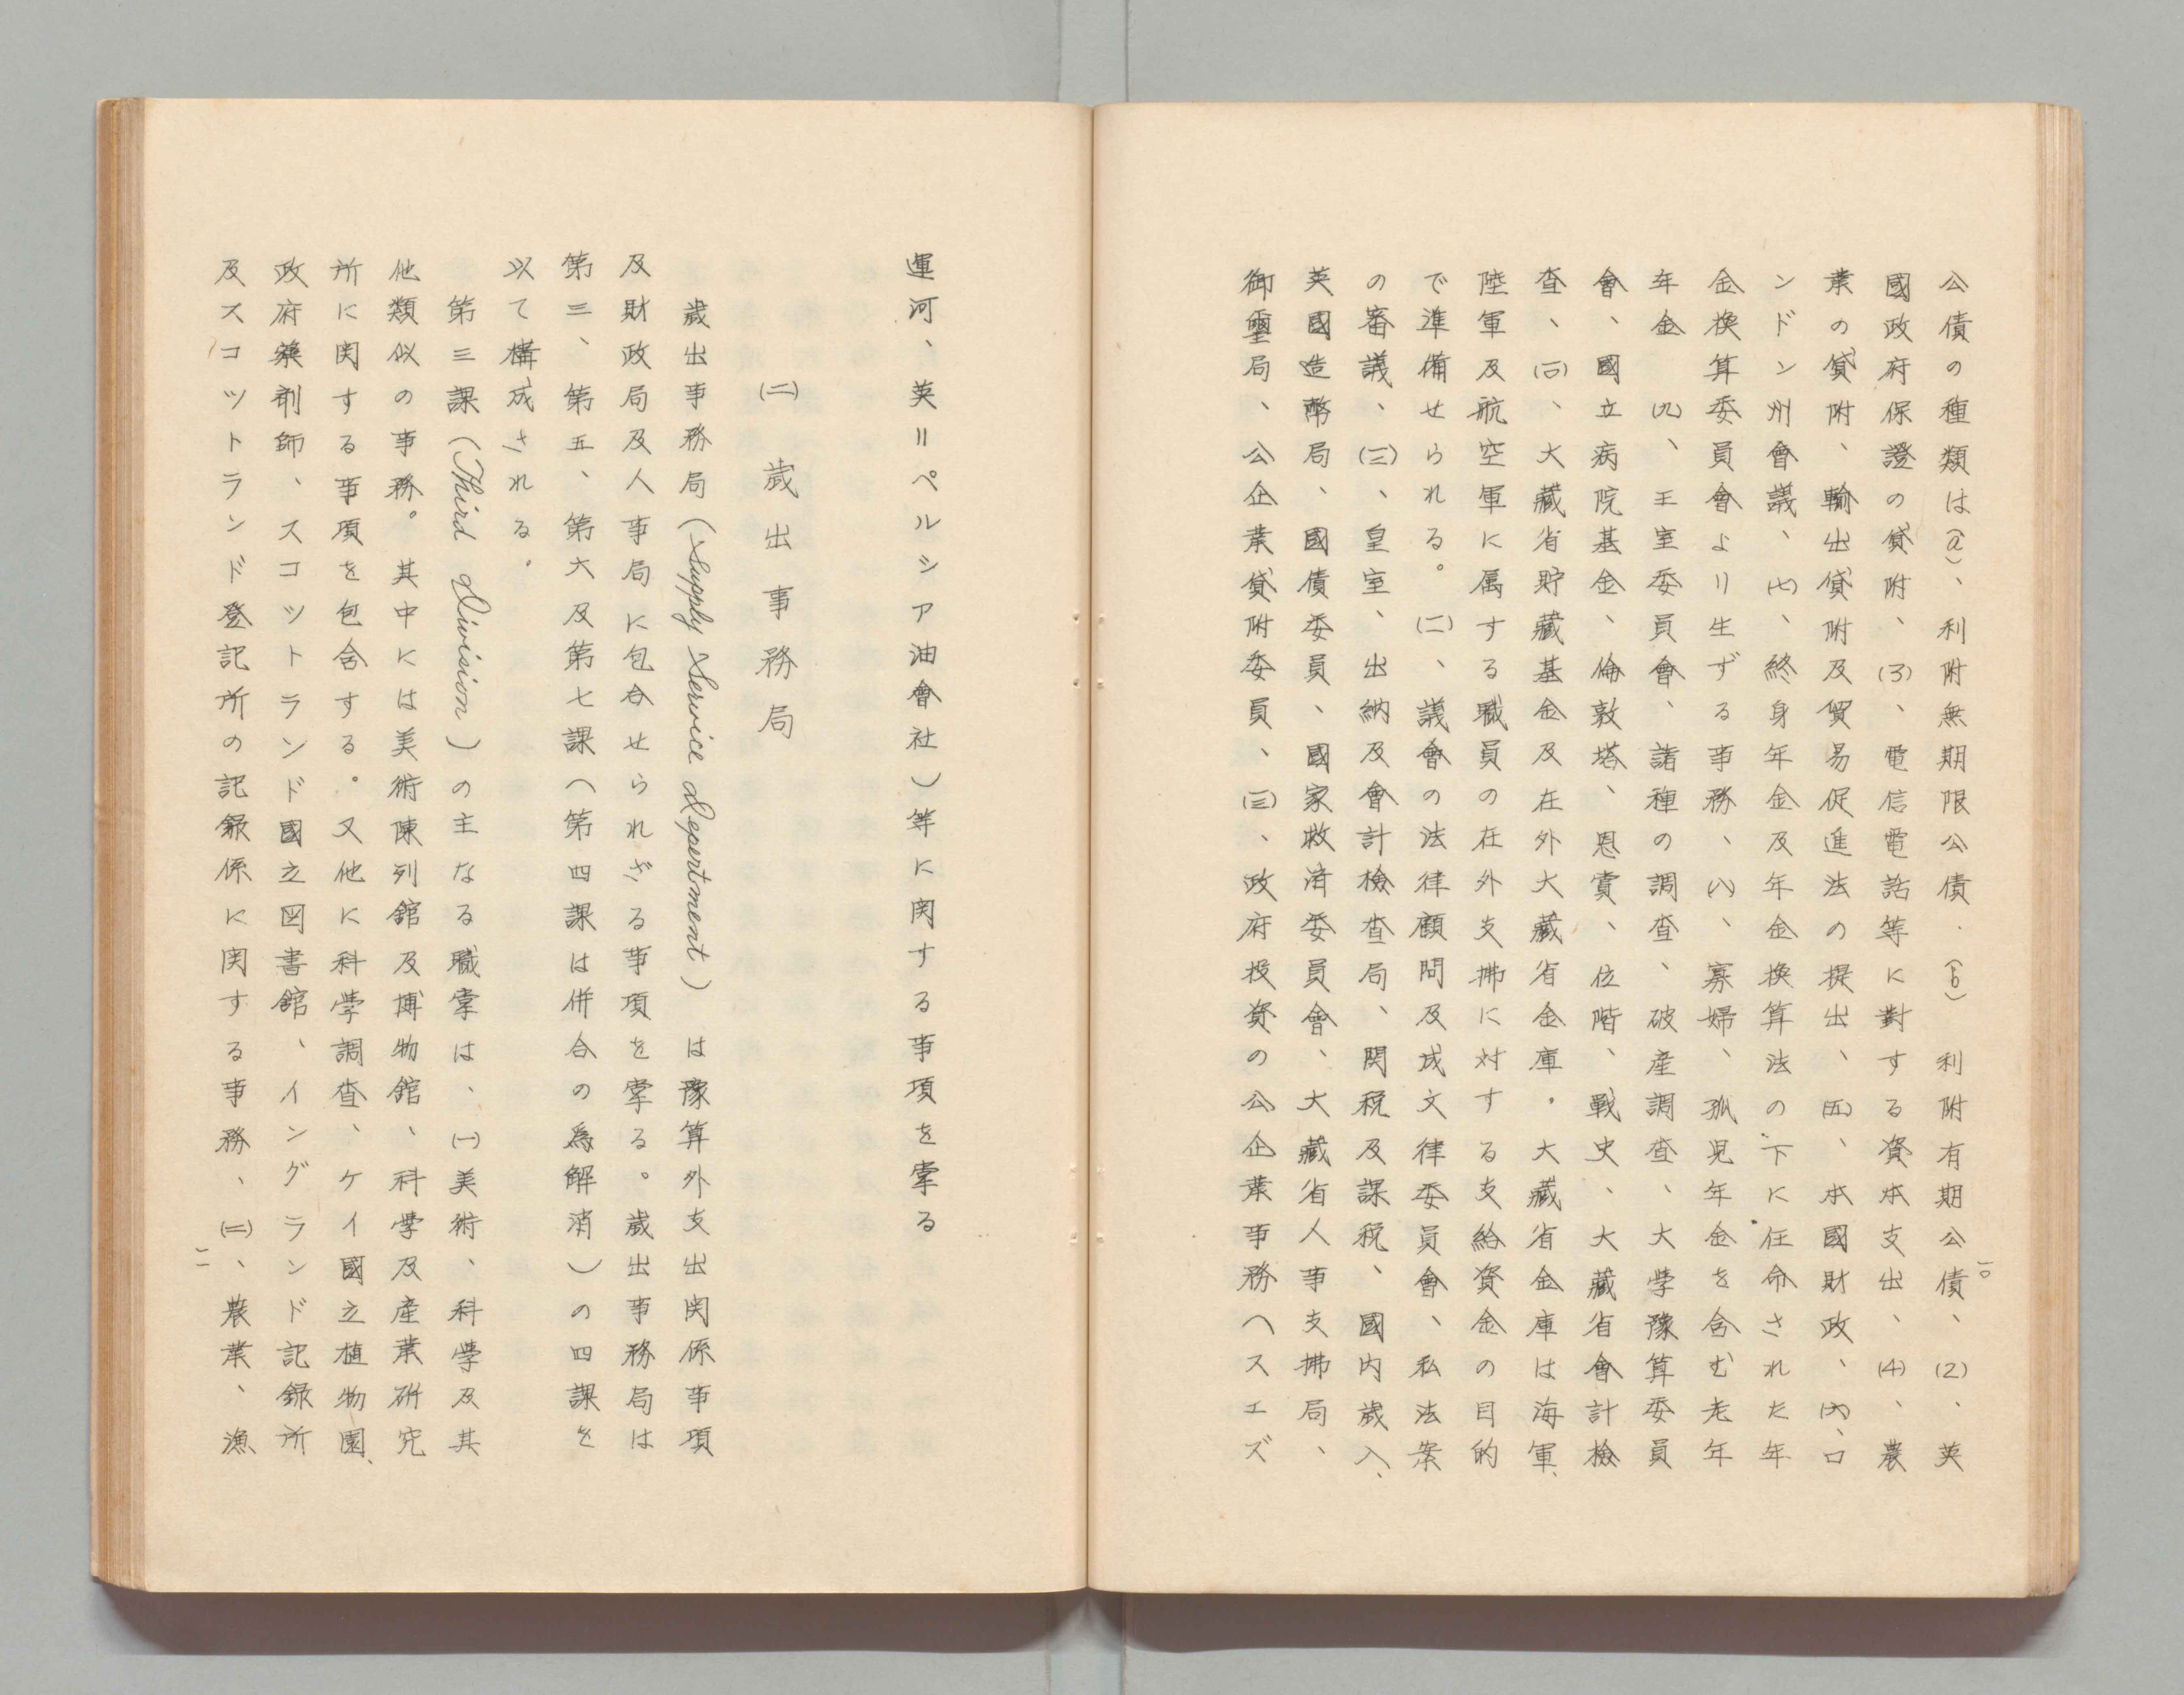 公債の種類は(a)、利附無期限公債.(b)利附有期公債、(2)、英
國政府保證の貸附、(3)、電信電話等に對する資本支出、(4)、農
業の貸附、輸出貸附及貿易促進法の提出、(五)、本國財政、(六)、ロ
ンドン州會議、(七)、終身年金及年金換算法の下に任命された年
金換算委員會より生ずる事務、(八)、寡婦、孤児年金を含む老年
年金(九)、王室委員會、諸種の調査、破産調査、大学豫算委員
會、國立病院基金、倫敦塔、恩賞、位階、戰史、大藏省會計檢
査、(一〇)、大藏省貯藏基金及在外大藏省金庫・大藏省金庫は海軍、
陸軍及航空軍に属する職員の在外支拂に対する支給資金の目的
で準備せられる。(二)、議會の法律顧問及成文律委員會、私法案
の審議、(三)、皇室、出納及會計檢査局、関税及課税、國内歳入、
英國造幣局、國債委員、國家救済委員會、大藏省人事支拂局、
御璽局、公企業貸附委員、(三)、政府投資の公企業事務(スエズ
一〇
運河、英=ペルシア油會社)等に関する事項を掌る
(二) 歳出事務局
歳出事務局(Supply Service Depertment)は豫算外支出関係事項
及財政局及人事局に包含せられざる事項を掌る。歳出事務局は
第三、第五、第六及第七課(第四課は併合の為解消)の四課を
以て構成される.
第三課(Third Division)の主なる職掌は、(一)美術、科學及其
他類似の事務。其中には美術陳列館及博物館、科学及産業研究
所に関する事項を包含する。又他に科學調査、ケイ國立植物園、
政府藥剤師、スコットランド國立図書館、イングランド記録所
及スコットランド登記所の記録係に関する事務、(二)、農業、漁
一一